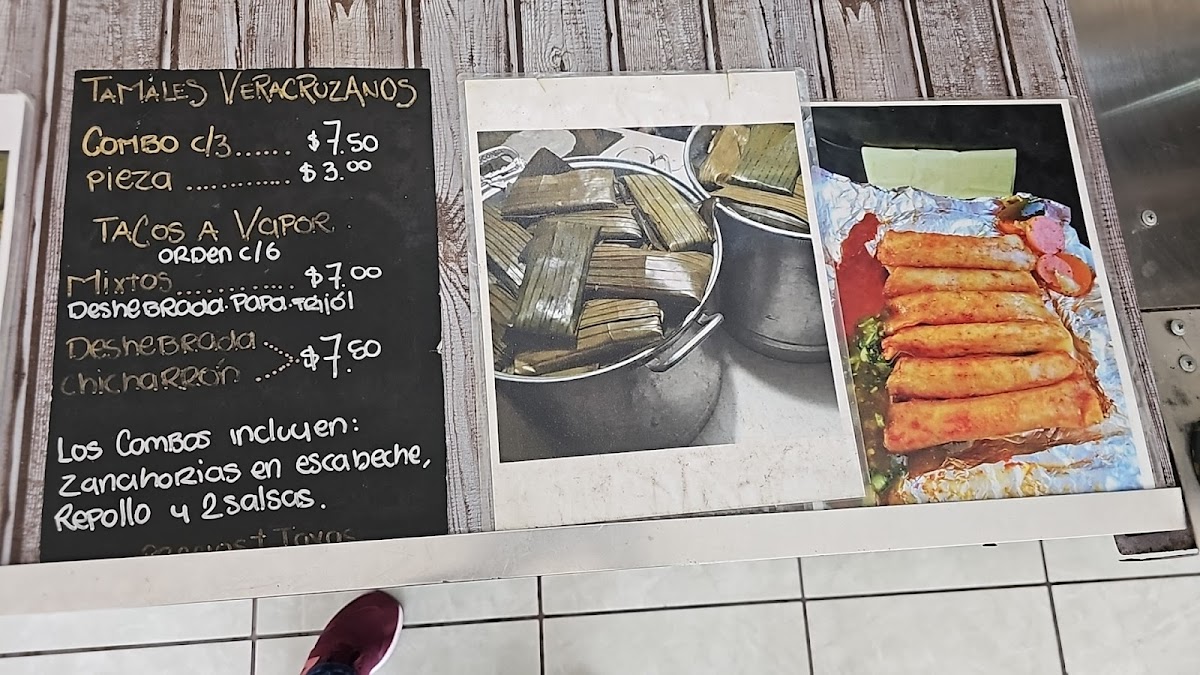 TAMALES VERACRUZANOS
COMBO c/3...... $7.50
pieza ............ $3.00
TACOS A VAPOR
ORDEN c/6
Mixtos............ $7.00
DESHEBRADA.PAPA.FRijól
DESHEBRADA ...... $7.50
chicharrón ...
Los Combos incluyen:
zanahorias en escabeche,
Repollo y 2 salsas.